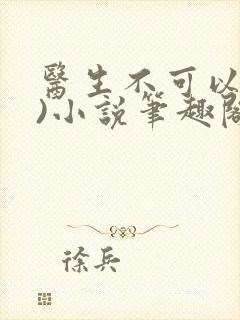 醫生不可以
)小說筆趣閣
徐兵